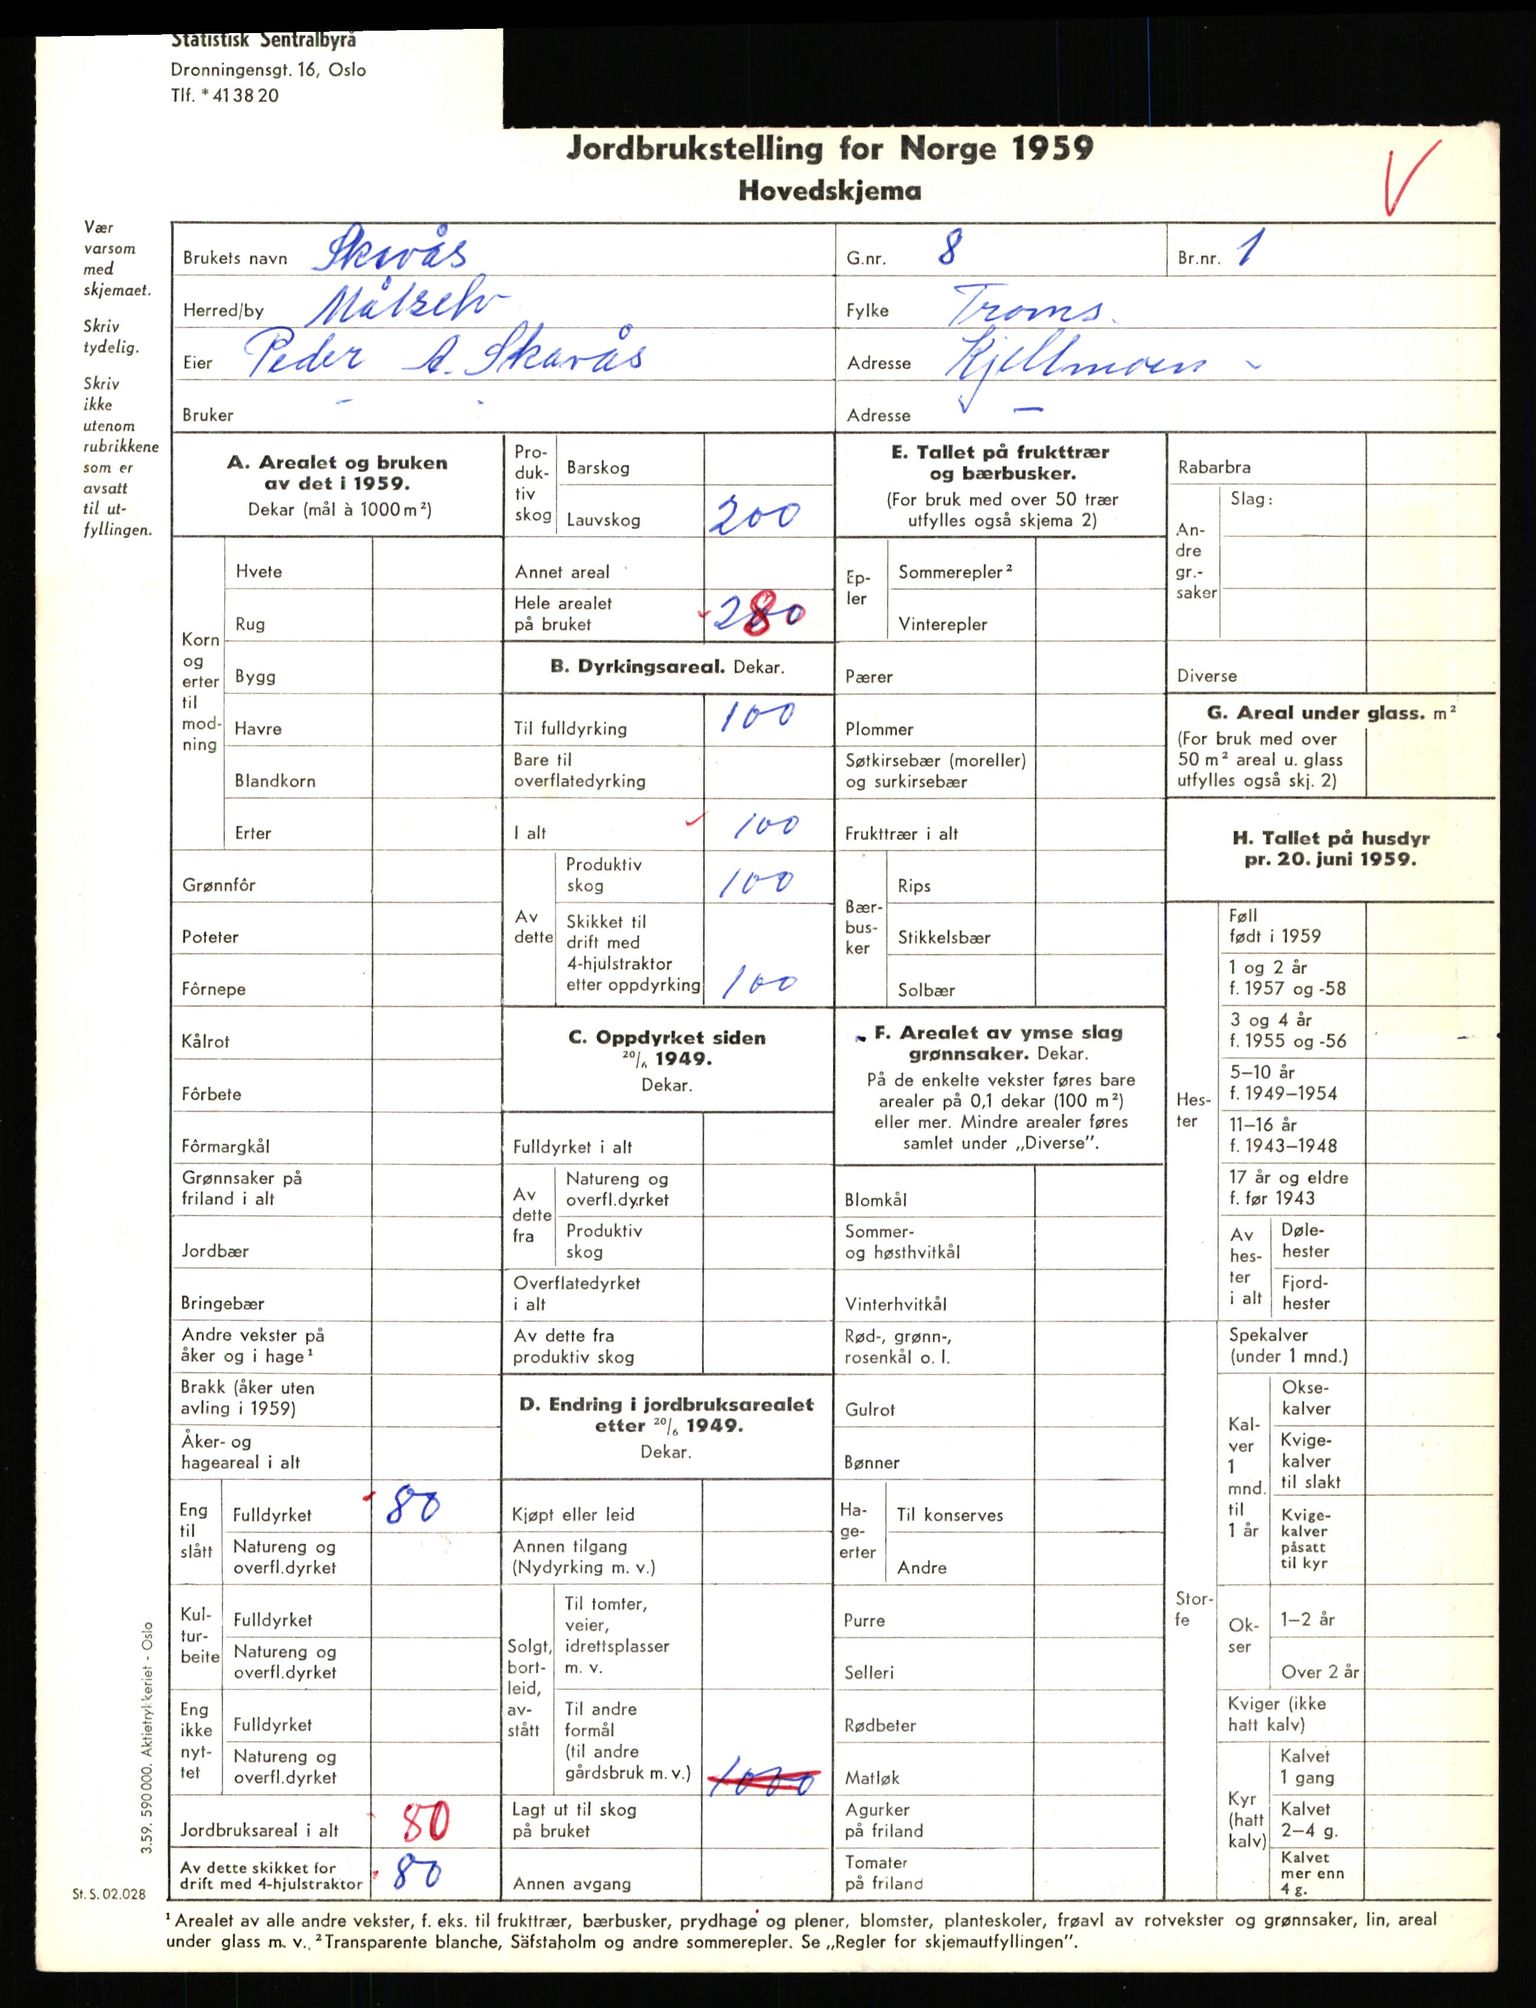 Statistisk Sentralbyrå
Dronningensgt. 16, Oslo
Tlf. * 41 38 20
Jordbrukstelling for Norge 1959
Hovedskjema
Vær
varsom
med
skjemaet.
Skriv
tydelig.
Skriv
ikke
utenom
rubrikkene
som er
avsatt
til ut-
fyllingen.
Brukets navn Skavås G.nr. 8 Br.nr. 1
Herred/by Målselv Fylke Troms.
Eier Peder A. Skavås Adresse Kjellmoen -
Bruker - - Adresse —
A. Arealet og bruken
av det i 1959.
Dekar (mål à 1000 m²)
Korn
og
erter
til
mod-
ning
Hvete
Rug
Bygg
Havre
Blandkorn
Erter
Grønnfôr
Poteter
Fôrnepe
Kålrot
Fôrbete
Fôrmargkål
Grønnsaker på
friland i alt
Jordbær
Bringebær
Andre vekster på
åker og i hage¹
Brakk (åker uten
avling i 1959)
Åker- og
hageareal i alt
Eng
til
slått
Fulldyrket 80
Natureng og
overfl.dyrket
Kul-
tur-
beite
Fulldyrket
Natureng og
overfl.dyrket
Eng
ikke
nyt-
tet
Fulldyrket
Natureng og
overfl.dyrket
Jordbruksareal i alt 80
Av dette skikket for
drift med 4-hjulstraktor 80
Pro-
duk-
tiv
skog
Barskog
Lauvskog 200
Annet areal
Hele arealet
på bruket 280
B. Dyrkingsareal. Dekar.
Til fulldyrking 100
Bare til
overflatedyrking
I alt 100
Av
dette
Produktiv
skog 100
Skikket til
drift med
4-hjulstraktor
etter oppdyrking 100
C. Oppdyrket siden
20/6 1949.
Dekar.
Fulldyrket i alt
Av
dette
fra
Natureng og
overfl.dyrket
Produktiv
skog
Overflatedyrket
i alt
Av dette fra
produktiv skog
D. Endring i jordbruksarealet
etter 20/6 1949.
Dekar.
Kjøpt eller leid
Annen tilgang
(Nydyrking m. v.)
Solgt,
bort-
leid,
av-
stått
Til tomter,
veier,
idrettsplasser
m. v.
Til andre
formål
(til andre
gårdsbruk m. v.) 1000
Lagt ut til skog
på bruket
Annen avgang
E. Tallet på frukttrær
og bærbusker.
(For bruk med over 50 trær
utfylles også skjema 2)
Ep-
ler
Sommerepler²
Vinterepler
Pærer
Plommer
Søtkirsebær (moreller)
og surkirsebær
Frukttrær i alt
Bær-
bus-
ker
Rips
Stikkelsbær
Solbær
F. Arealet av ymse slag
grønnsaker. Dekar.
På de enkelte vekster føres bare
arealer på 0,1 dekar (100 m²)
eller mer. Mindre arealer føres
samlet under „Diverse”.
Blomkål
Sommer-
og høsthvitkål
Vinterhvitkål
Rød-, grønn-,
rosenkål o. l.
Gulrot
Bønner
Ha-
ge-
erter
Til konserves
Andre
Purre
Selleri
Rødbeter
Matløk
Agurker
på friland
Tomater
på friland
Rabarbra
An-
dre
gr.-
saker
Slag:
Diverse
G. Areal under glass. m²
(For bruk med over
50 m² areal u. glass
utfylles også skj. 2)
H. Tallet på husdyr
pr. 20. juni 1959.
Hes-
ter
Føll
født i 1959
1 og 2 år
f. 1957 og -58
3 og 4 år
f. 1955 og -56
5–10 år
f. 1949–1954
11–16 år
f. 1943–1948
17 år og eldre
f. før 1943
Av
hes-
ter
i alt
Døle-
hester
Fjord-
hester
Stor-
fe
Spekalver
(under 1 mnd.)
Kal-
ver
1
mnd.
til
1 år
Okse-
kalver
Kvige-
kalver
til slakt
Kvige-
kalver
påsatt
til kyr
Ok-
ser
1–2 år
Over 2 år
Kviger (ikke
hatt kalv)
Kyr
(hatt
kalv)
Kalvet
1 gang
Kalvet
2–4 g.
Kalvet
mer enn
4 g.
3.59. 590 000. Aktietrykkeriet - Oslo
St. S. 02.028
¹ Arealet av alle andre vekster, f. eks. til frukttrær, bærbusker, prydhage og plener, blomster, planteskoler, frøavl av rotvekster og grønnsaker, lin, areal
under glass m. v. ² Transparente blanche, Säfstaholm og andre sommerepler. Se „Regler for skjemautfyllingen”.